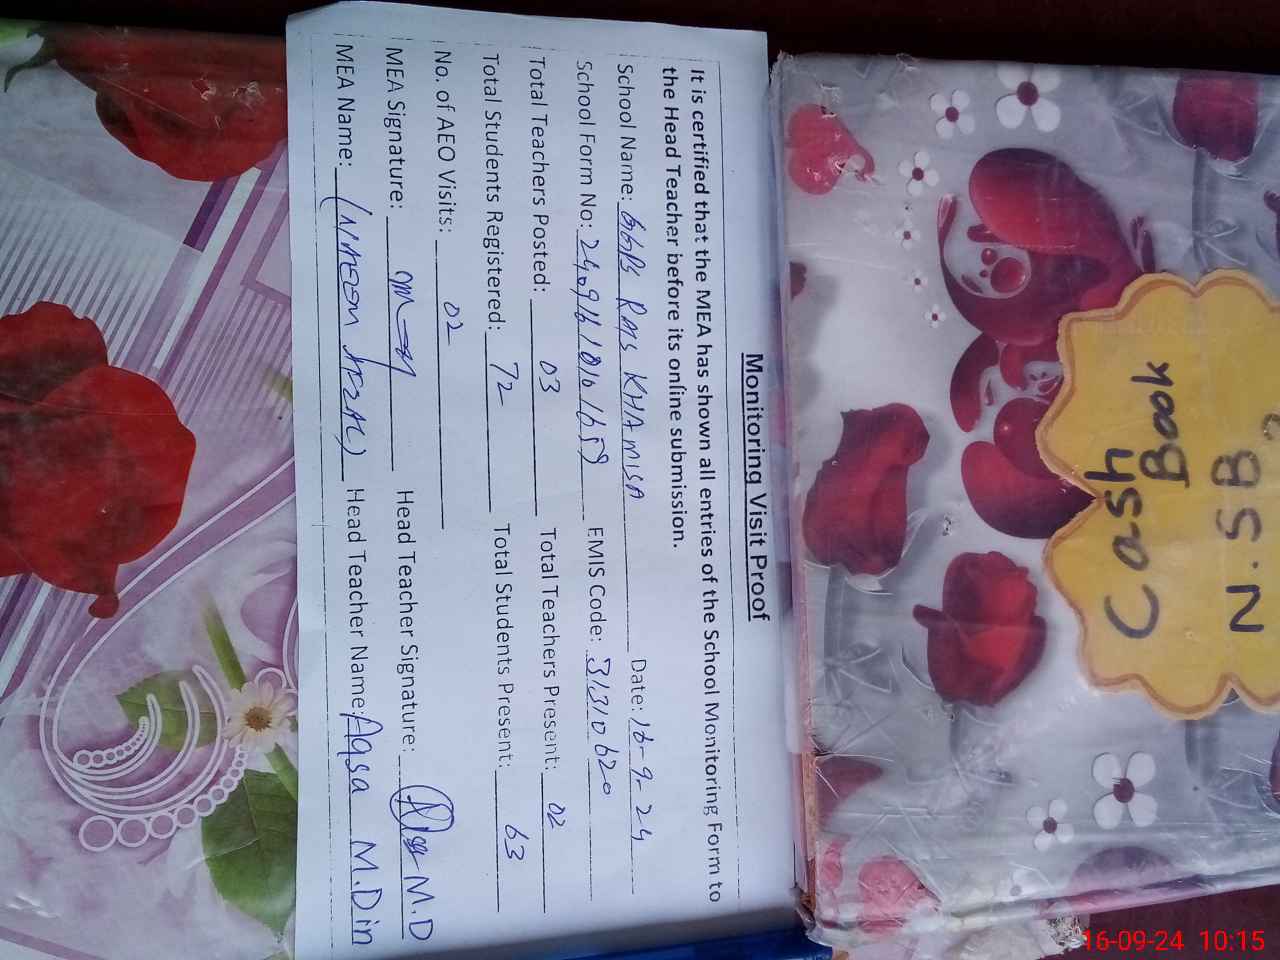 Monitoring Visit Proof
It is certified that the MEA has shown all entries of the School Monitoring Form to
the Head Teacher before its online submission.
School Name: GGPS KHAMISA Date: 16-9-24
School Form No: EMIS Code: 31310620
Total Teachers Posted: 03 Total Teachers Present: 02
Total Students Registered: 72 Total Students Present: 63
No. of AEO Visits: 02
MEA Signature: Head Teacher Signature: M.D
MEA Name: Head Teacher Name: Aqsa M.Din
Cash
Book
N.SB
16-09-24 10:15